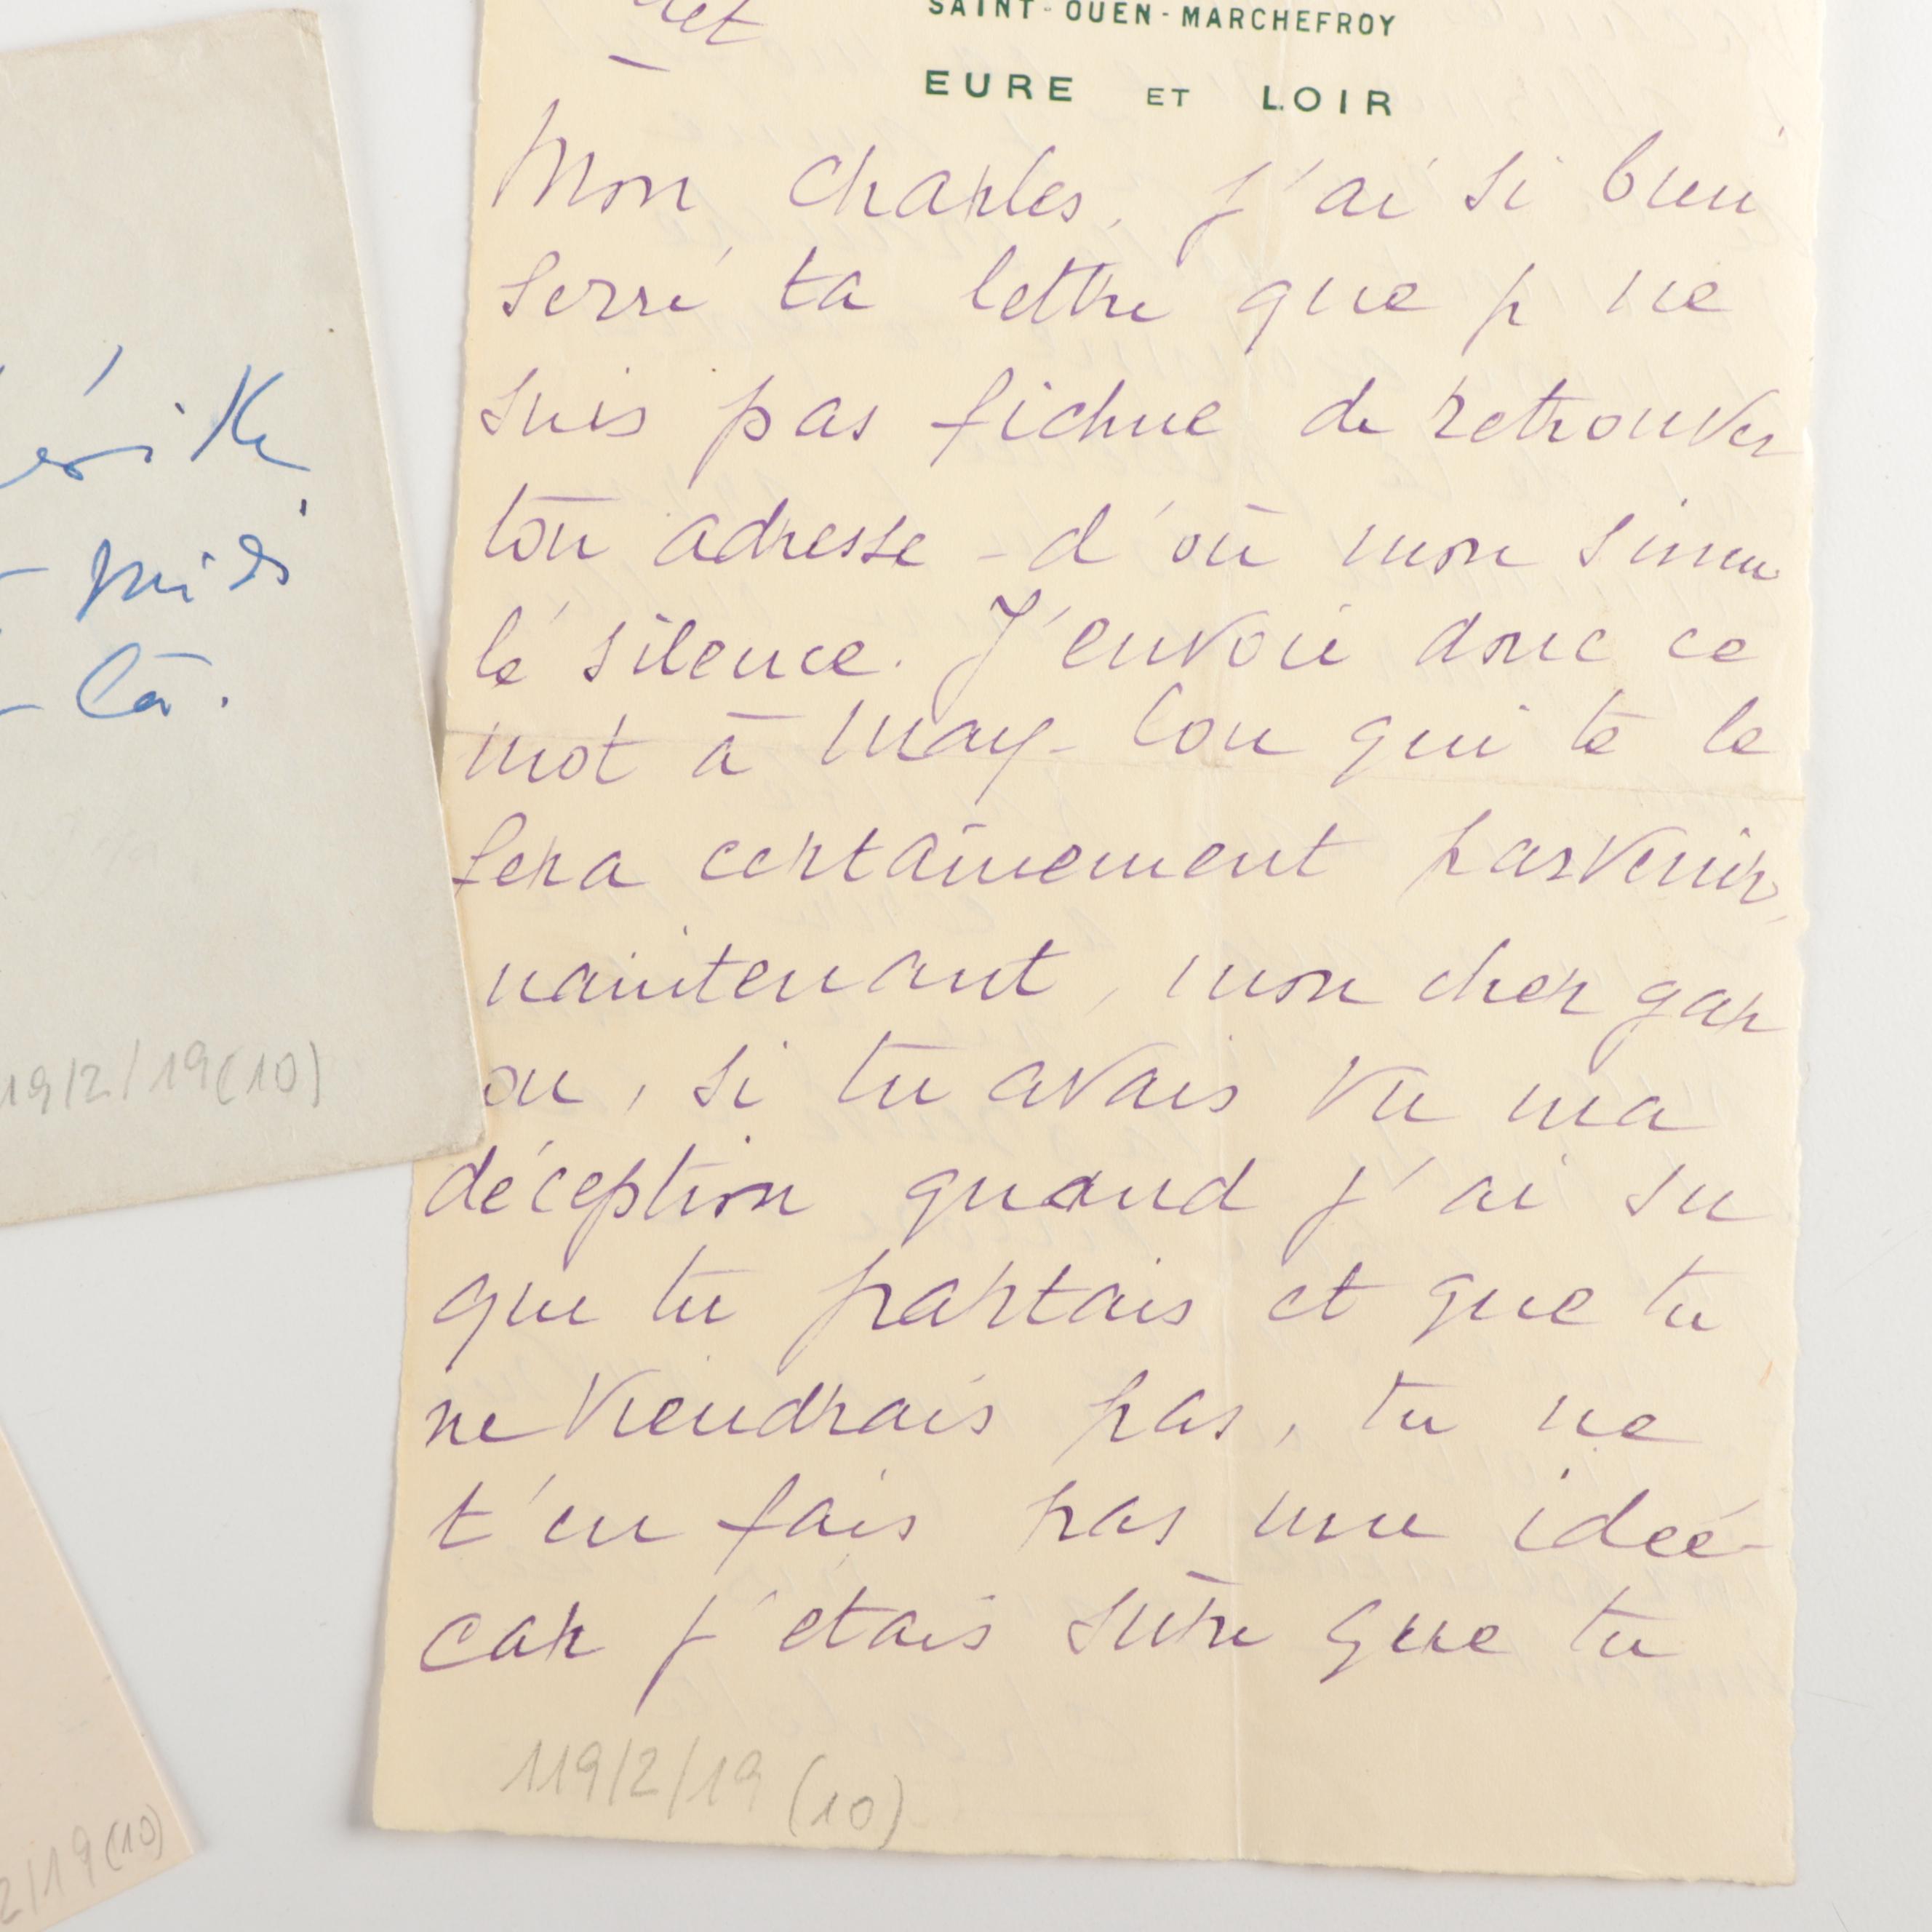 SAINT-OUEN-MARCHEFROY
EURE ET LOIR
Mon Charles, j'ai si bien
serré ta lettre que je ne
suis pas fichue de retrouver
ton adresse - d'où mon simu
lé silence. J'envoie donc ce
mot à May-lou qui te le
fera certainement parvenir,
maintenant, mon cher gar
on, si tu avais vu ma
déception quand j'ai su
que tu partais et que tu
ne viendrais pas, tu ne
t'en fais pas une idée
car j'étais sûre que tu
119/2/19 (10)
là.
19/2/19(10)
2/19(10)